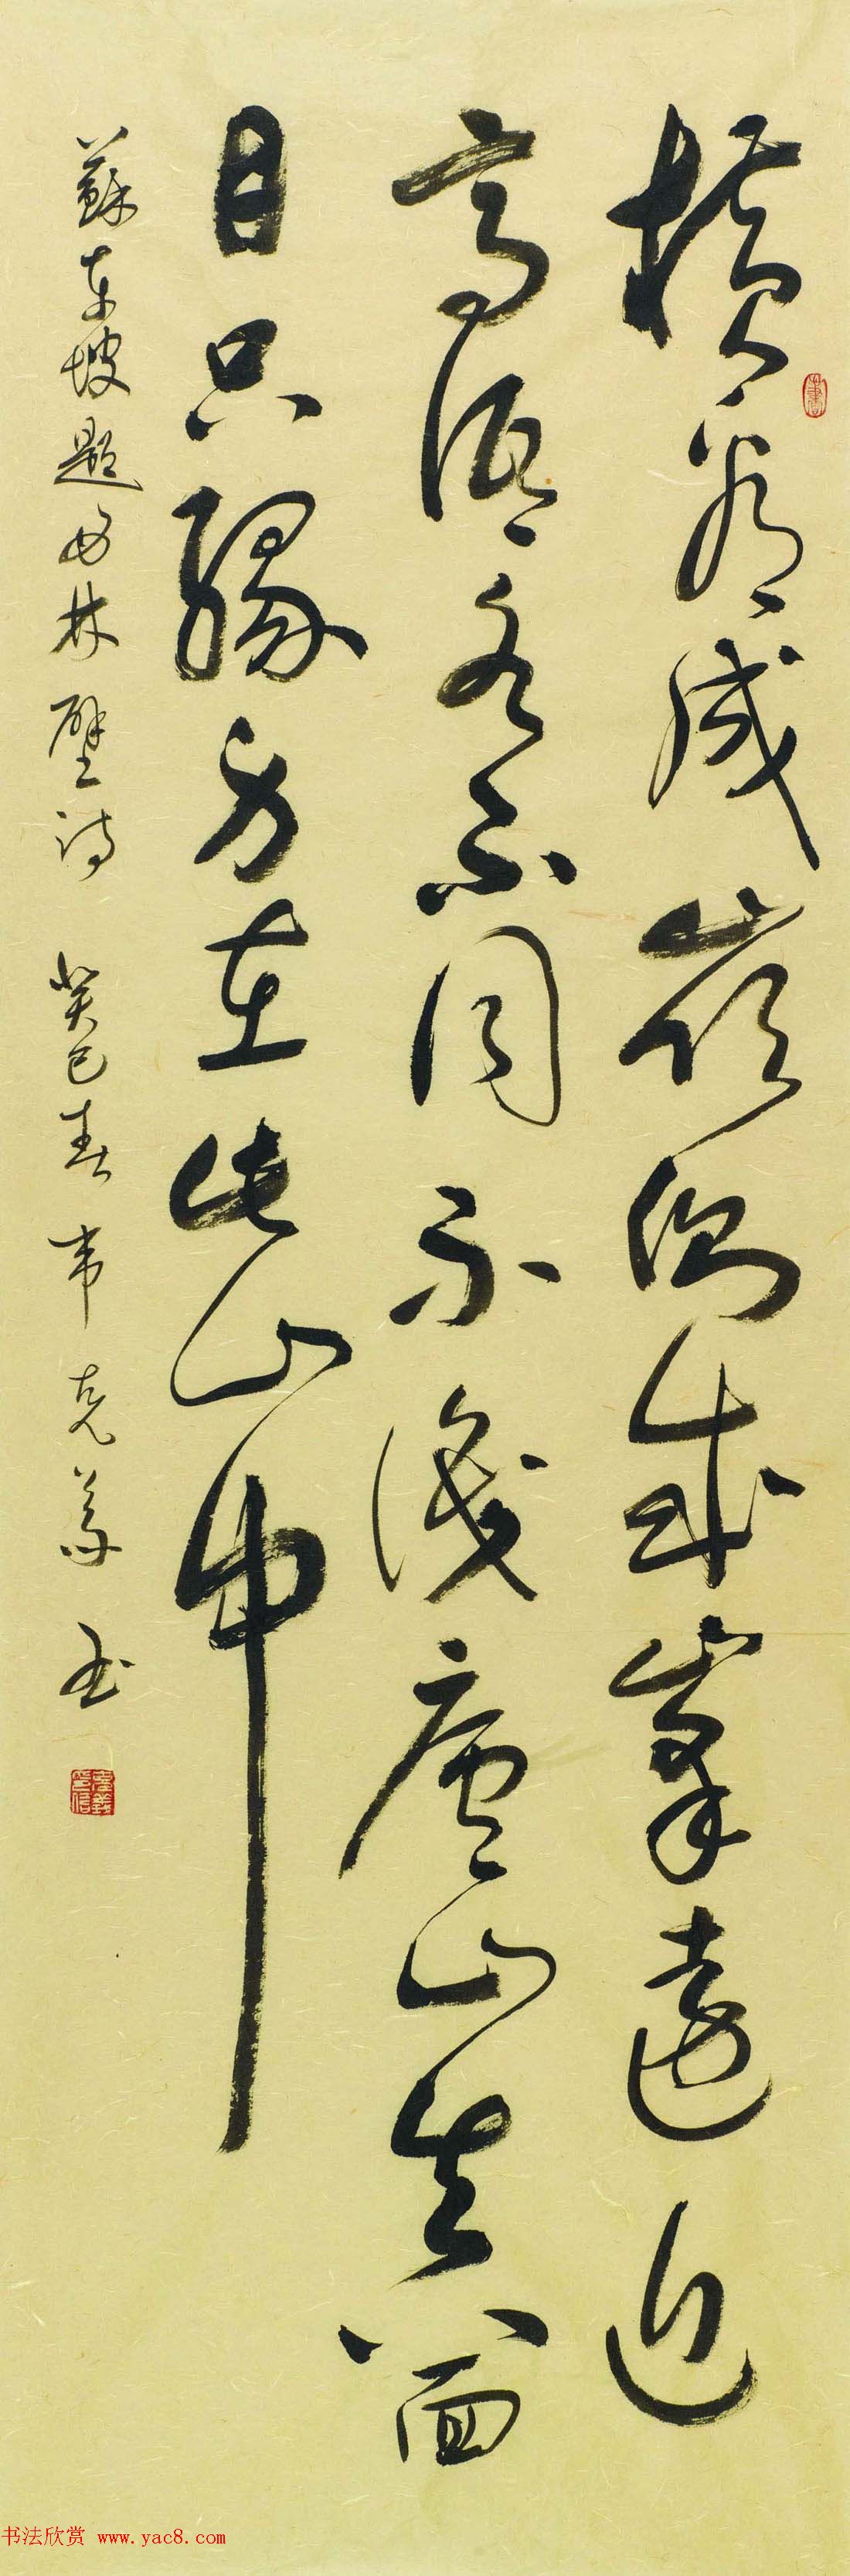 橫看成嶺側成峯遠近
高低各不同不識廬山真面
目只緣身在此山中
蘇東坡題西林壁詩 癸巳春 韋克義書
书法欣赏 www.yac8.com